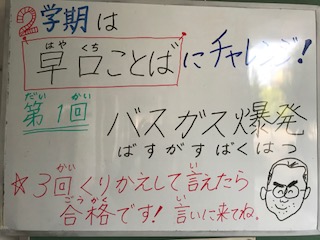 2学期は
はや くち
早口ことばにチャレンジ!
だい かい
第1回
バスガス爆発
ばすがすばくはつ
かい い
☆3回くりかえして言えたら
ごうかく い
合格です! 言いに来てね。